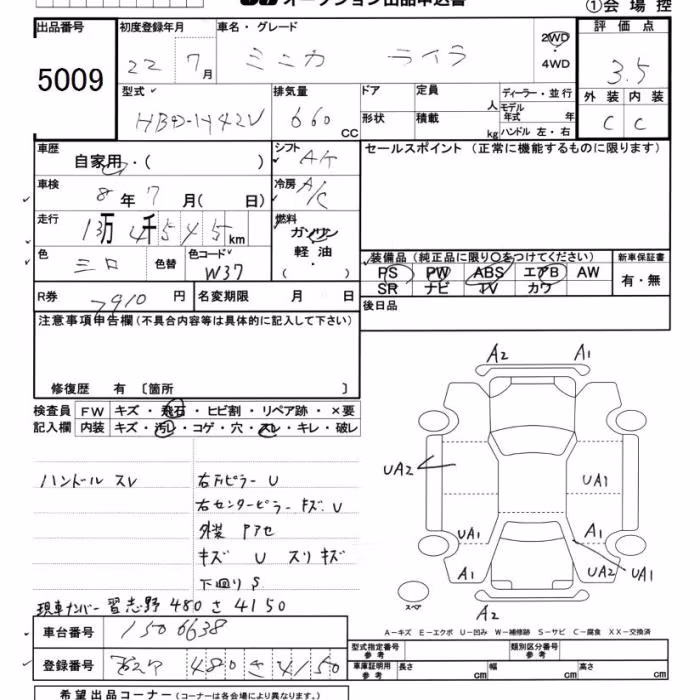 オークション出品申込書
①会場控
出品番号 初度登録年月 車名・グレード 評価点
5009
22 7月 ミニカ ライラ 2WD 4WD 3.5
型式 排気量 ドア 定員 人 ディーラー・並行 外装 内装
HBD-H42V 660 CC 形状 積載 kg モデル年式 年 ハンドル 左・右 C C
車歴 自家用・( ) シフト AT セールスポイント (正常に機能するものに限ります)
車検 8年7月( 日) 冷房 A/C
走行 13万4千545km 燃料 ガソリン 軽油 ( )
色 シロ 色替 色コード W37
装備品 (純正品に限り○をつけてください) 新車保証書
PS PW ABS エアB AW 有・無
SR ナビ TV カワ
R券 7910円 名変期限 月 日 後日品
注意事項申告欄 (不具合内容等は具体的に記入して下さい)
修復歴 有 〔箇所 〕
検査員記入欄 FW キズ・飛石・ヒビ割・リペア跡・×要
内装 キズ・汚レ・コゲ・穴・スレ・キレ・破レ
ハンドル スレ
右Fピラー U
右センターピラー キズ、U
外装 アセ
キズ U スリキズ
下回り S
現車ナンバー 習志野 480 さ 4150
A2 A1
UA2 UA1
UA1 A1
A1 UA2 UA1
スペア A2
A-キズ E-エクボ U-凹み W-補修跡 S-サビ C-腐食 XX-交換済
車台番号 1506638
登録番号 480 さ 4150
型式指定番号 参考 類別区分番号 参考
車庫証明用 参考 長さ cm 幅 cm 高さ cm
希望出品コーナー (コーナーは各会場により異なります。)